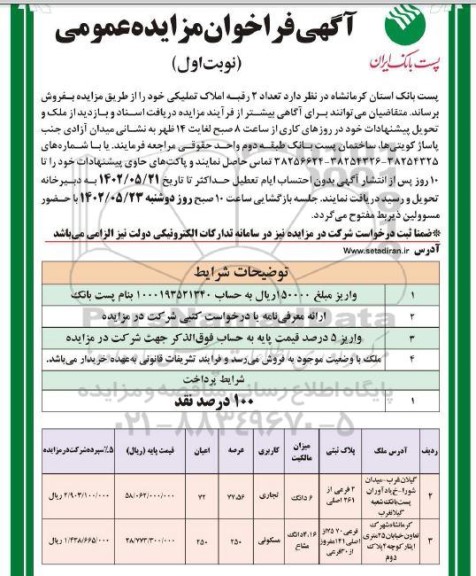 آگهی فراخوان مزایده عمومی
(نوبت اول)
پست بانک ایران
پست بانک استان کرمانشاه در نظر دارد تعداد ۲ رقبه املاک تملیکی خود را از طریق مزایده بفروش
برساند. متقاضیان می‌توانند برای آگاهی بیشتر از فرآیند مزایده دریافت اسناد و بازدید از ملک و
تحویل پیشنهادات خود در روزهای کاری از ساعت ۸ صبح لغایت ۱۴ ظهر به نشانی میدان آزادی جنب
پاساژ کویتی‌ها، ساختمان پست بانک طبقه دوم واحد حقوقی مراجعه فرمایند. یا با شماره‌های
۳۸۲۵۴۳۲۵-۳۸۲۵۴۳۲۶-۳۸۲۵۶۶۲۴ تماس حاصل نمایند و پاکت‌های حاوی پیشنهادات خود را تا
۱۰ روز پس از انتشار آگهی بدون احتساب ایام تعطیل حداکثر تا تاریخ ۱۴۰۲/۰۵/۲۱ به دبیرخانه
تحویل و رسید دریافت نمایند. جلسه بازگشایی ساعت ۱۰ صبح روز دوشنبه ۱۴۰۲/۰۵/۲۳ با حضور
مسوولین ذیربط مفتوح می‌گردد.
*ضمنا ثبت درخواست شرکت در مزایده نیز در سامانه تدارکات الکترونیکی دولت نیز الزامی می‌باشد
آدرس Www.setadiran.ir
توضیحات شرایط
۱ واریز مبلغ ۱۵۰۰۰۰۰ ریال به حساب ۱۰۰۰۱۹۳۵۲۱۳۴۰ بنام پست بانک
۲ ارائه معرفی‌نامه یا درخواست کتبی شرکت در مزایده
۳ واریز ۵ درصد قیمت پایه به حساب فوق‌الذکر جهت شرکت در مزایده
۴ ملک با وضعیت موجود به فروش می‌رسد و فرایند تشریفات قانونی به عهده خریدار می‌باشد.
شرایط پرداخت
۱ ۱۰۰ درصد نقد
پایگاه اطلاع رسانی مناقصه و مزایده
۰۲۱-۸۸۳۴۹۶۷۰-۵
ردیف آدرس ملک پلاک ثبتی میزان مالکیت کاربری عرصه اعیان قیمت پایه (ریال) ۵٪ سپرده شرکت در مزایده
۲ گیلان غرب - میدان شورا - خ یادآوران پست بانک شعبه گیلانغرب ۲ فرعی از ۲۶۱ اصلی ۶ دانگ تجاری ۷۷.۵۶ ۷۲ ۵۸/۰۶۲/۰۰۰/۰۰۰ ۲/۹۰۳/۱۰۰/۰۰۰ ریال
۳ کرمانشاه شهرک تعاون خیابان ۲۵ متری ایثار کوچه ۲ پلاک دوم مشاع مسکونی ۲۵۰ ۲۵۰ ۲۸/۷۷۳/۳۰۰/۰۰۰ ۱/۴۳۸/۶۶۵/۰۰۰ ریال